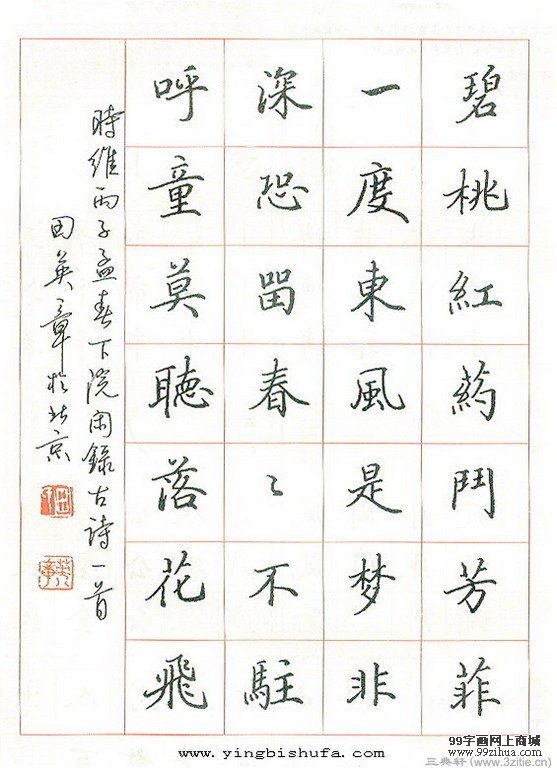 碧桃紅葯鬥芳菲
一度東風是梦非
深恐留春〻不駐
呼童莫聽落花飛
時維丙子孟春下院閑錄古詩一首
田英章於北京
www.yingbishufa.com
99字画网上商城
www.99zihua.com
三典轩(www.3zitie.cn)